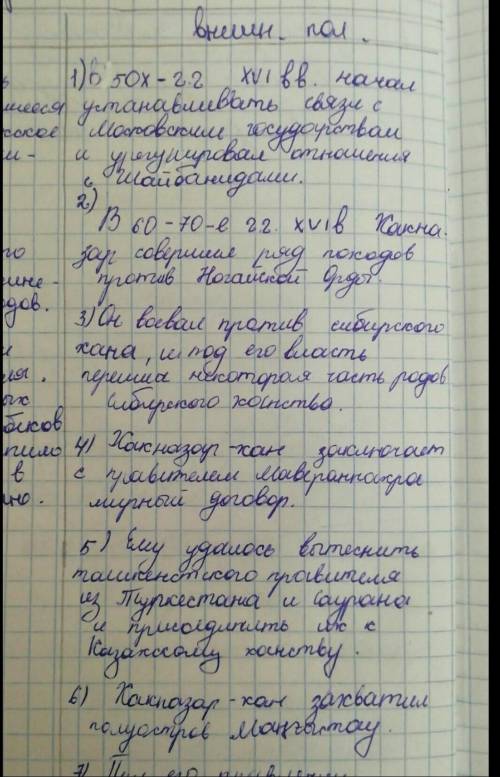 внешн. пол.
1) В 50х-г.г XVI вв. начал
шееся устанавливать связи с
ское Московским государствам
и урегулировал отношения
с Шайбанидами.
2)
В 60-70-е г.г. XVI в Хакна-
го зар совершил ряд походов
против Ногайской Орды.
одов.
3) Он воевал против сибирского
и хана, и под его власть
ля. перешла некоторая часть родов
ых Сибирского ханства.
беков
пило 4) Хакназар-хан заключает
в с правителем Мавераннахра
но. мирный договор.
5) Ему удалось вытеснить
ташкентского правителя
из Туркестана и Саурана
и присоединить их к
Казахскому ханству.
6) Хакназар-хан захватил
полуостров Маңғыстау.
7) При его правлении